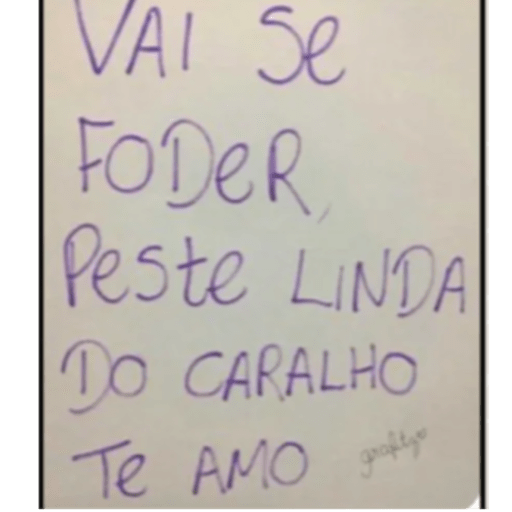 VAI Se
FODeR,
Peste LiNDA
DO CARALHO
Te AMO